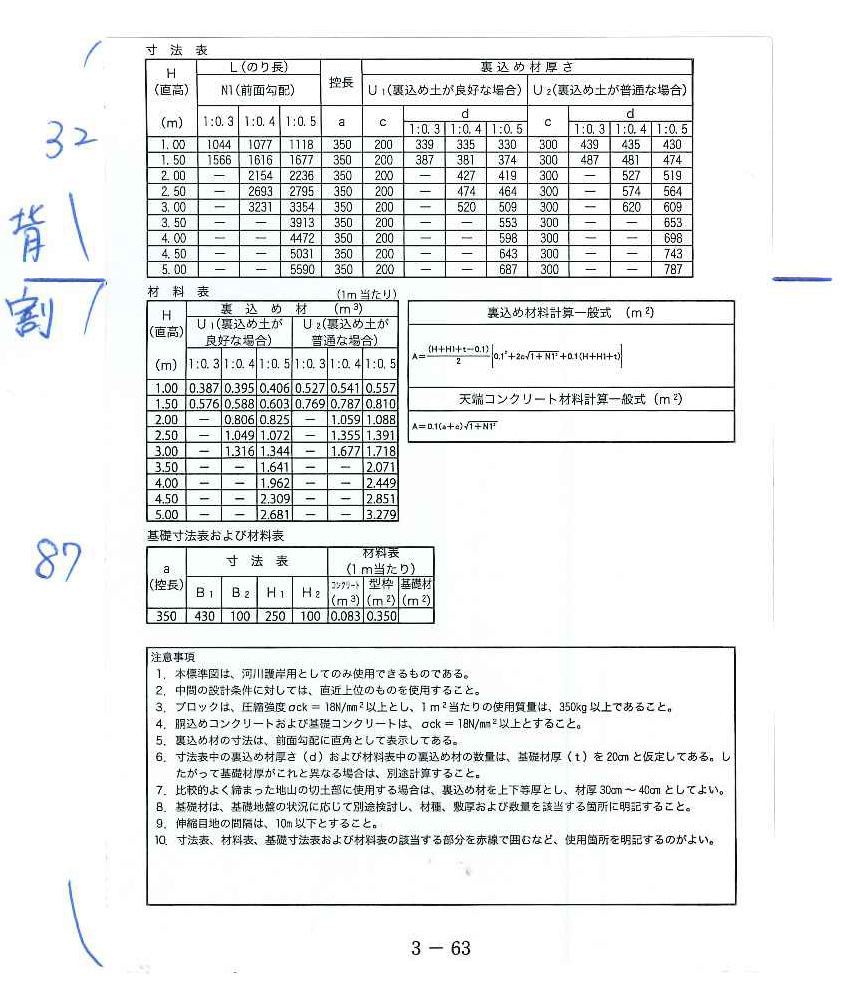 32
背
割
87
寸 法 表
H L(のり長) 裏込め材厚さ
(直高) N1(前面勾配) 控長 U1(裏込め土が良好な場合) U2(裏込め土が普通な場合)
d d
(m) 1:0.3 1:0.4 1:0.5 a c 1:0.3 1:0.4 1:0.5 c 1:0.3 1:0.4 1:0.5
1.00 1044 1077 1118 350 200 339 335 330 300 439 435 430
1.50 1566 1616 1677 350 200 387 381 374 300 487 481 474
2.00 — 2154 2236 350 200 — 427 419 300 — 527 519
2.50 — 2693 2795 350 200 — 474 464 300 — 574 564
3.00 — 3231 3354 350 200 — 520 509 300 — 620 609
3.50 — — 3913 350 200 — — 553 300 — — 653
4.00 — — 4472 350 200 — — 598 300 — — 698
4.50 — — 5031 350 200 — — 643 300 — — 743
5.00 — — 5590 350 200 — — 687 300 — — 787
材 料 表 (1m当たり)
H 裏 込 め 材 (m³)
(直高) U1(裏込め土が U2(裏込め土が
良好な場合) 普通な場合)
(m) 1:0.3 1:0.4 1:0.5 1:0.3 1:0.4 1:0.5
1.00 0.387 0.395 0.406 0.527 0.541 0.557
1.50 0.576 0.588 0.603 0.769 0.787 0.810
2.00 — 0.806 0.825 — 1.059 1.088
2.50 — 1.049 1.072 — 1.355 1.391
3.00 — 1.316 1.344 — 1.677 1.718
3.50 — — 1.641 — — 2.071
4.00 — — 1.962 — — 2.449
4.50 — — 2.309 — — 2.851
5.00 — — 2.681 — — 3.279
裏込め材料計算一般式 (m²)
天端コンクリート材料計算一般式 (m²)
A=0.1(a+c)√1+N1²
基礎寸法表および材料表
a 寸 法 表 材料表
(控長) (1m当たり)
B1 B2 H1 H2 コンクリート 型枠 基礎材
(m³) (m²) (m²)
350 430 100 250 100 0.083 0.350
注意事項
1. 本標準図は、河川護岸用としてのみ使用できるものである。
2. 中間の設計条件に対しては、直近上位のものを使用すること。
3. ブロックは、圧縮強度σck = 18N/mm²以上とし、1m²当たりの使用質量は、350kg以上であること。
4. 胴込めコンクリートおよび基礎コンクリートは、σck = 18N/mm²以上とすること。
5. 裏込め材の寸法は、前面勾配に直角として表示してある。
6. 寸法表中の裏込め材厚さ(d)および材料表中の裏込め材の数量は、基礎材厚(t)を20cmと仮定してある。し
たがって基礎材厚がこれと異なる場合は、別途計算すること。
7. 比較的よく締まった地山の切土部に使用する場合は、裏込め材を上下等厚とし、材厚30cm～40cmとしてよい。
8. 基礎材は、基礎地盤の状況に応じて別途検討し、材種、敷厚および数量を該当する箇所に明記すること。
9. 伸縮目地の間隔は、10m以下とすること。
10. 寸法表、材料表、基礎寸法表および材料表の該当する部分を赤線で囲むなど、使用箇所を明記するのがよい。
3 － 63